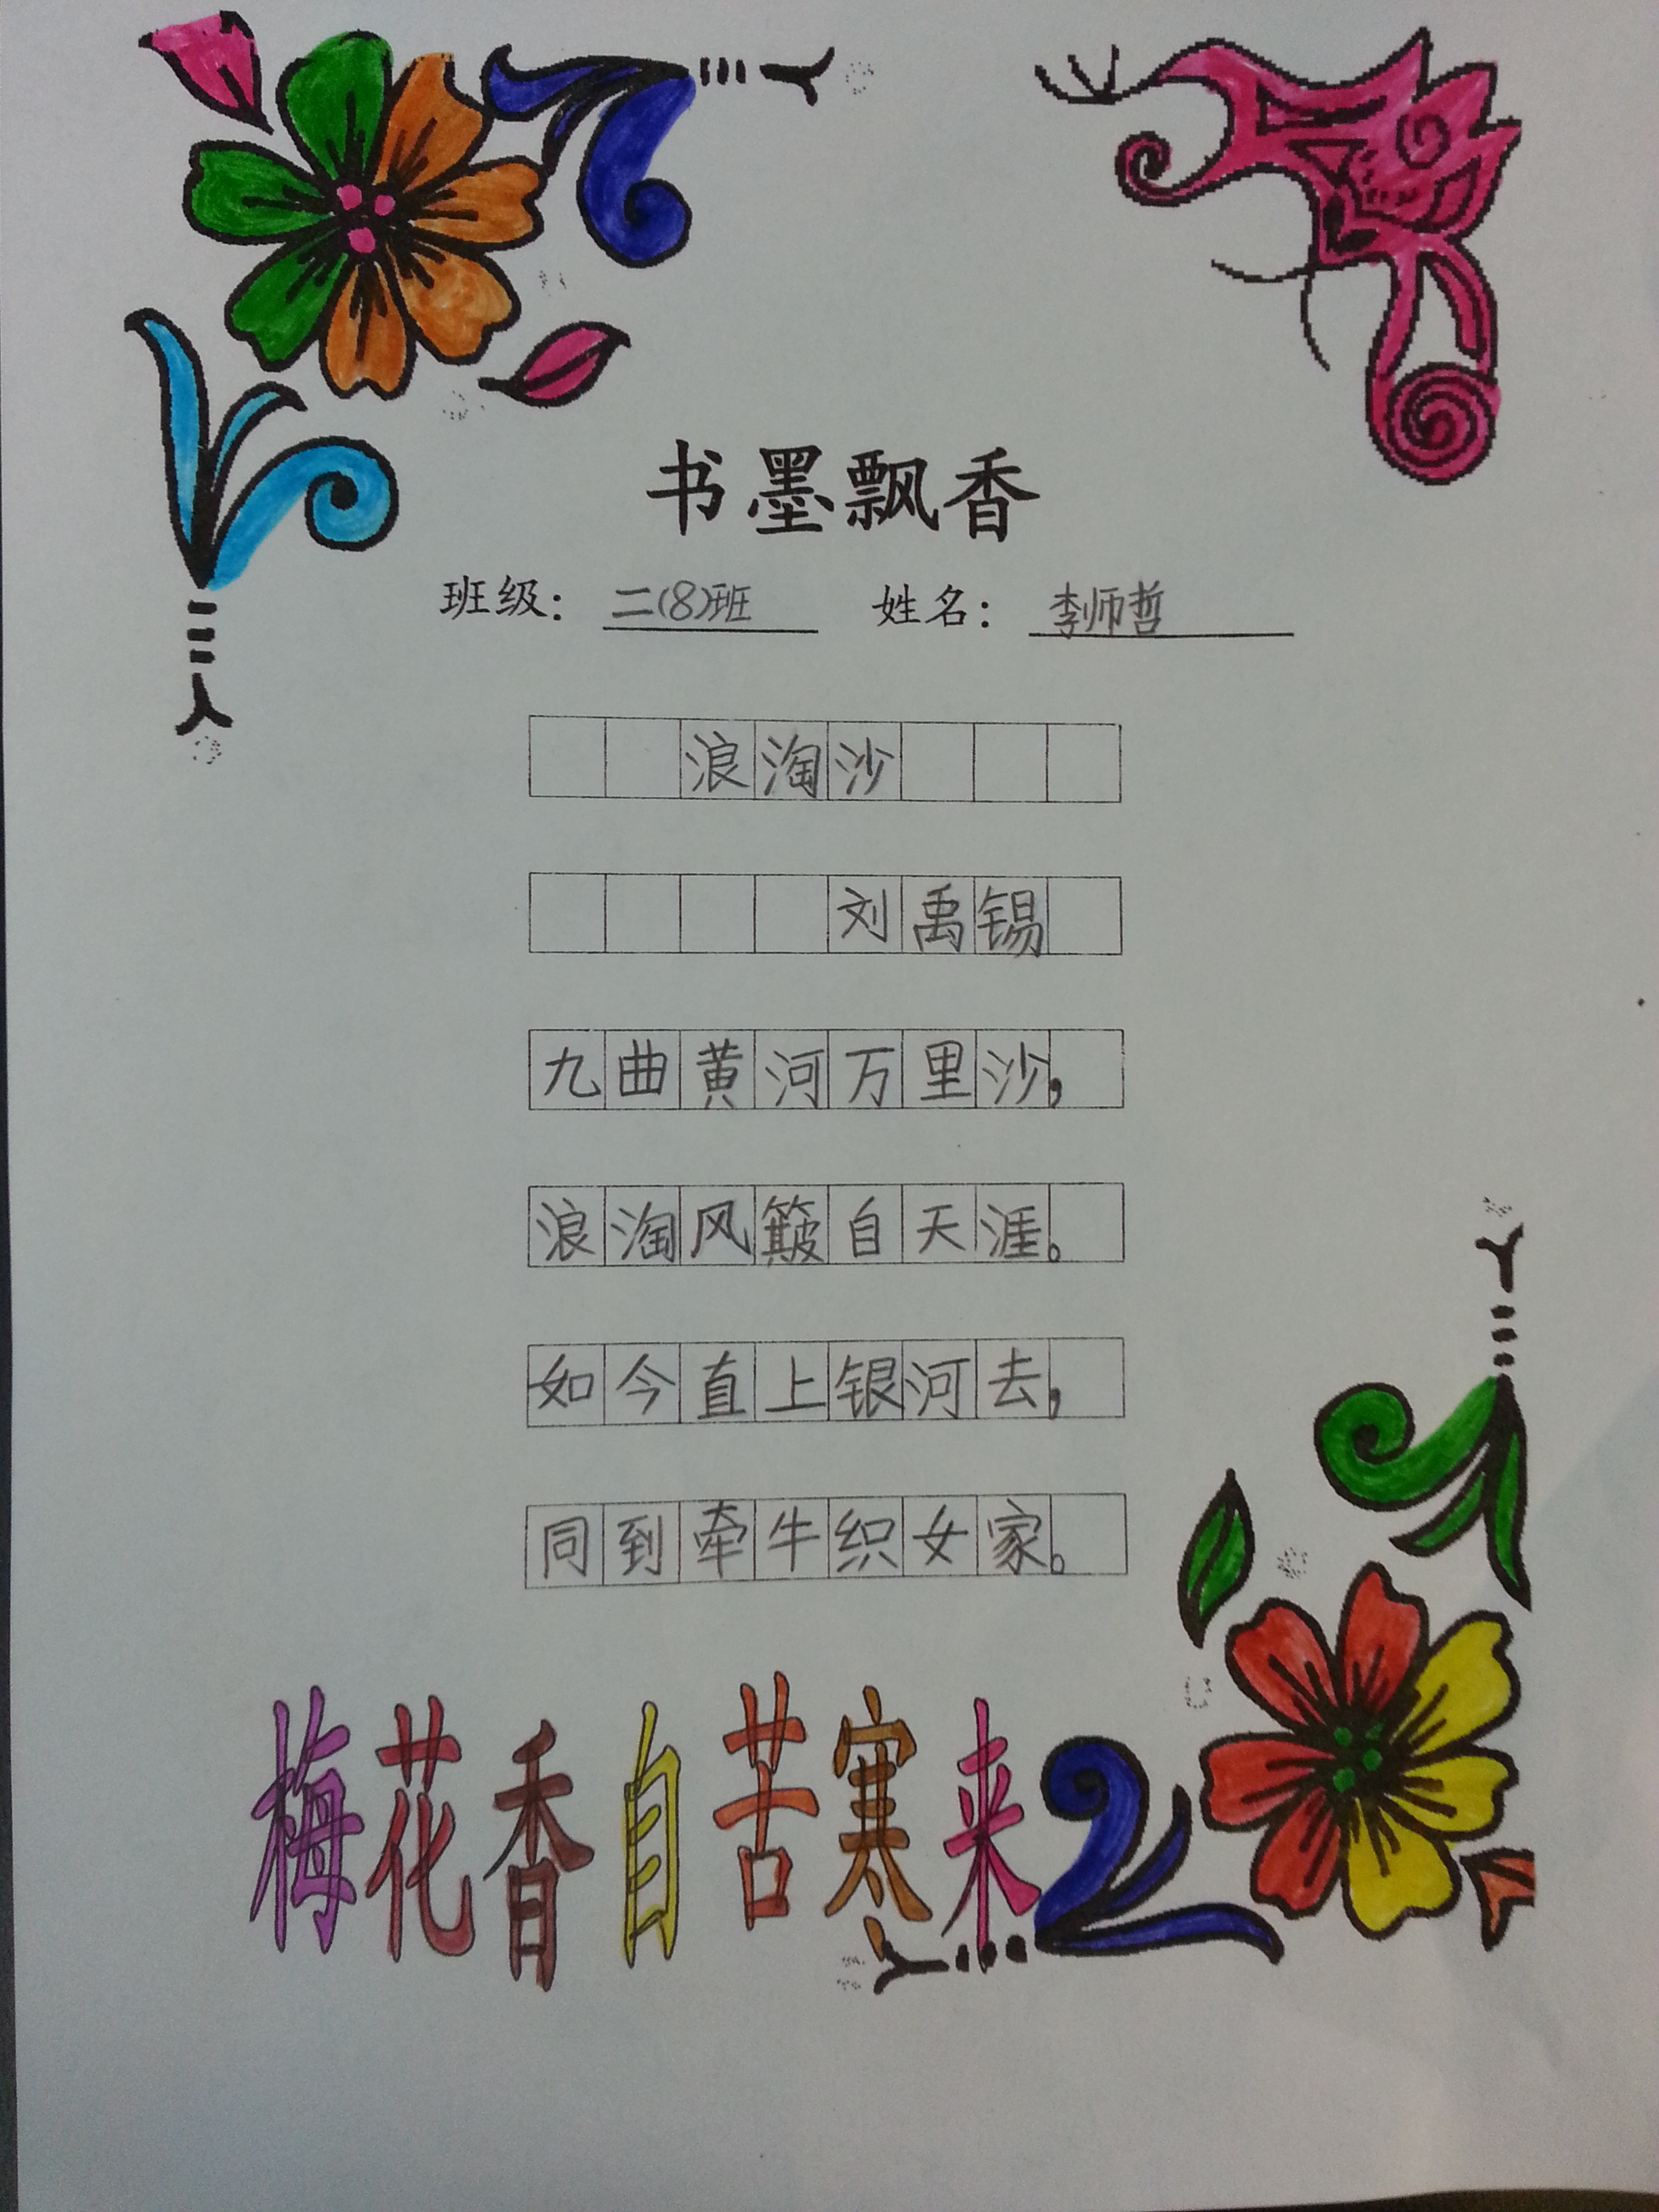 书墨飘香
班级：二(8)班 姓名：李师哲
浪淘沙
刘禹锡
九曲黄河万里沙，
浪淘风簸自天涯。
如今直上银河去，
同到牵牛织女家。
梅花香自苦寒来